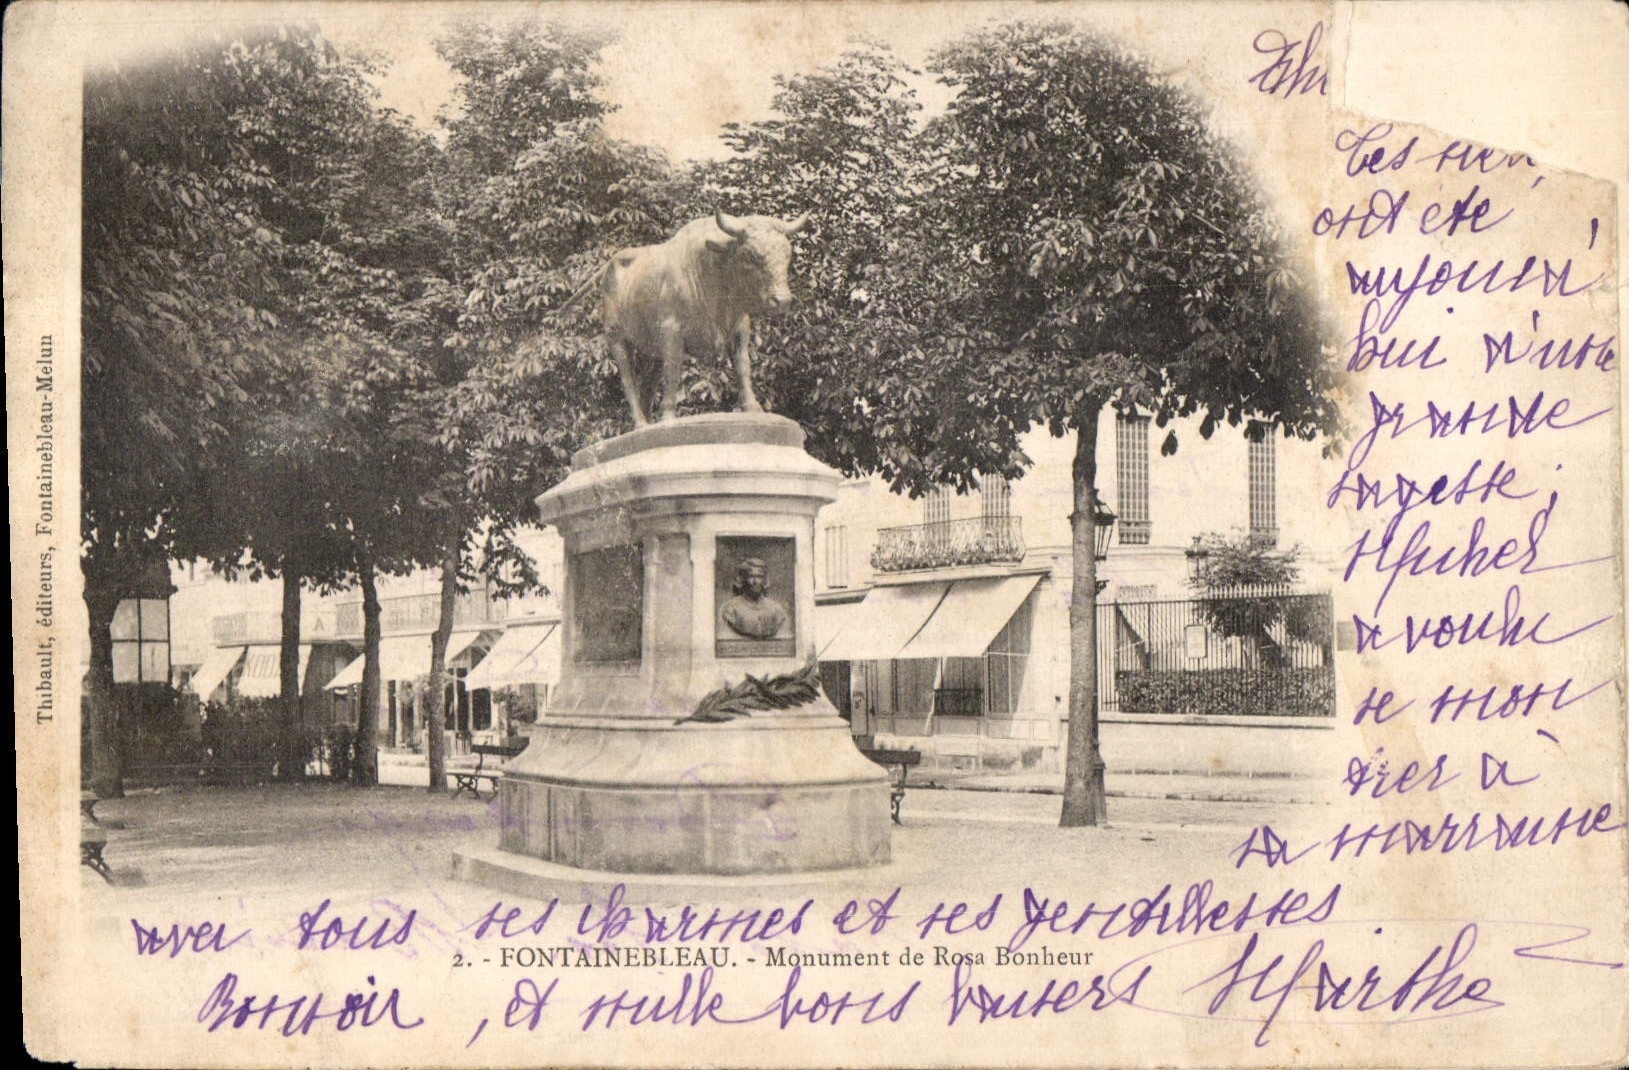 Thibault, éditeurs, Fontainebleau-Melun
ont été
aujourd'
hui d'une
grande
sagesse ;
Michel
a voulu
se mon
trer à
sa marraine
avec tous ses charmes et ses gentillesses
2. - FONTAINEBLEAU. - Monument de Rosa Bonheur
Bonsoir, et mille bons baisers Marthe